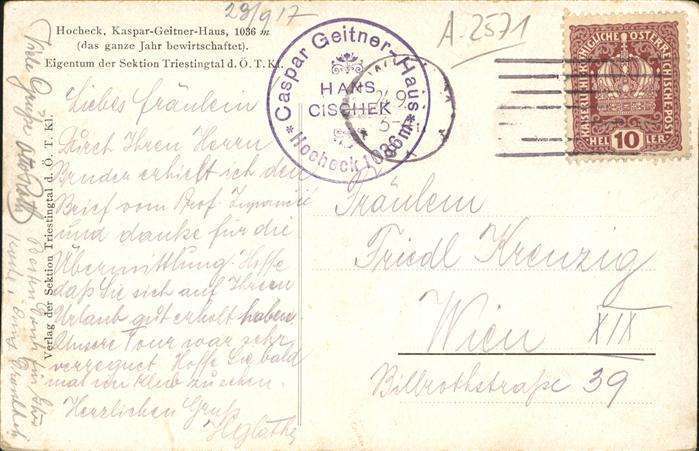 23/9 17
A. 2571
Hocheck, Kaspar-Geitner-Haus, 1036 m
(das ganze Jahr bewirtschaftet).
Eigentum der Sektion Triestingtal d. Ö. T. Kl.
Verlag der Sektion Triestingtal d. Ö. T. Kl.
Caspar Geitner-Haus
HANS
CISCHEK
Hocheck 1036m
KAISERLICHE KÖNIGLICHE ÖSTERREICHISCHE POST
HEL 10 LER
Liebes Fräulein
Durch Ihren Herrn
Bruder erhielt ich den
Brief vom Prof.
und danke für die
Übermittlung. Hoffe
daß Sie sich auf Ihrem
Urlaub gut erholt haben
Unsere Tour war sehr
verregnet. Hoffe Sie bald
mal im Klub zu sehen.
Herzlichen Gruß
Viele Grüße
Fräulein
Friedl Kreuzig
Wien XIX
Billrothstraße 39